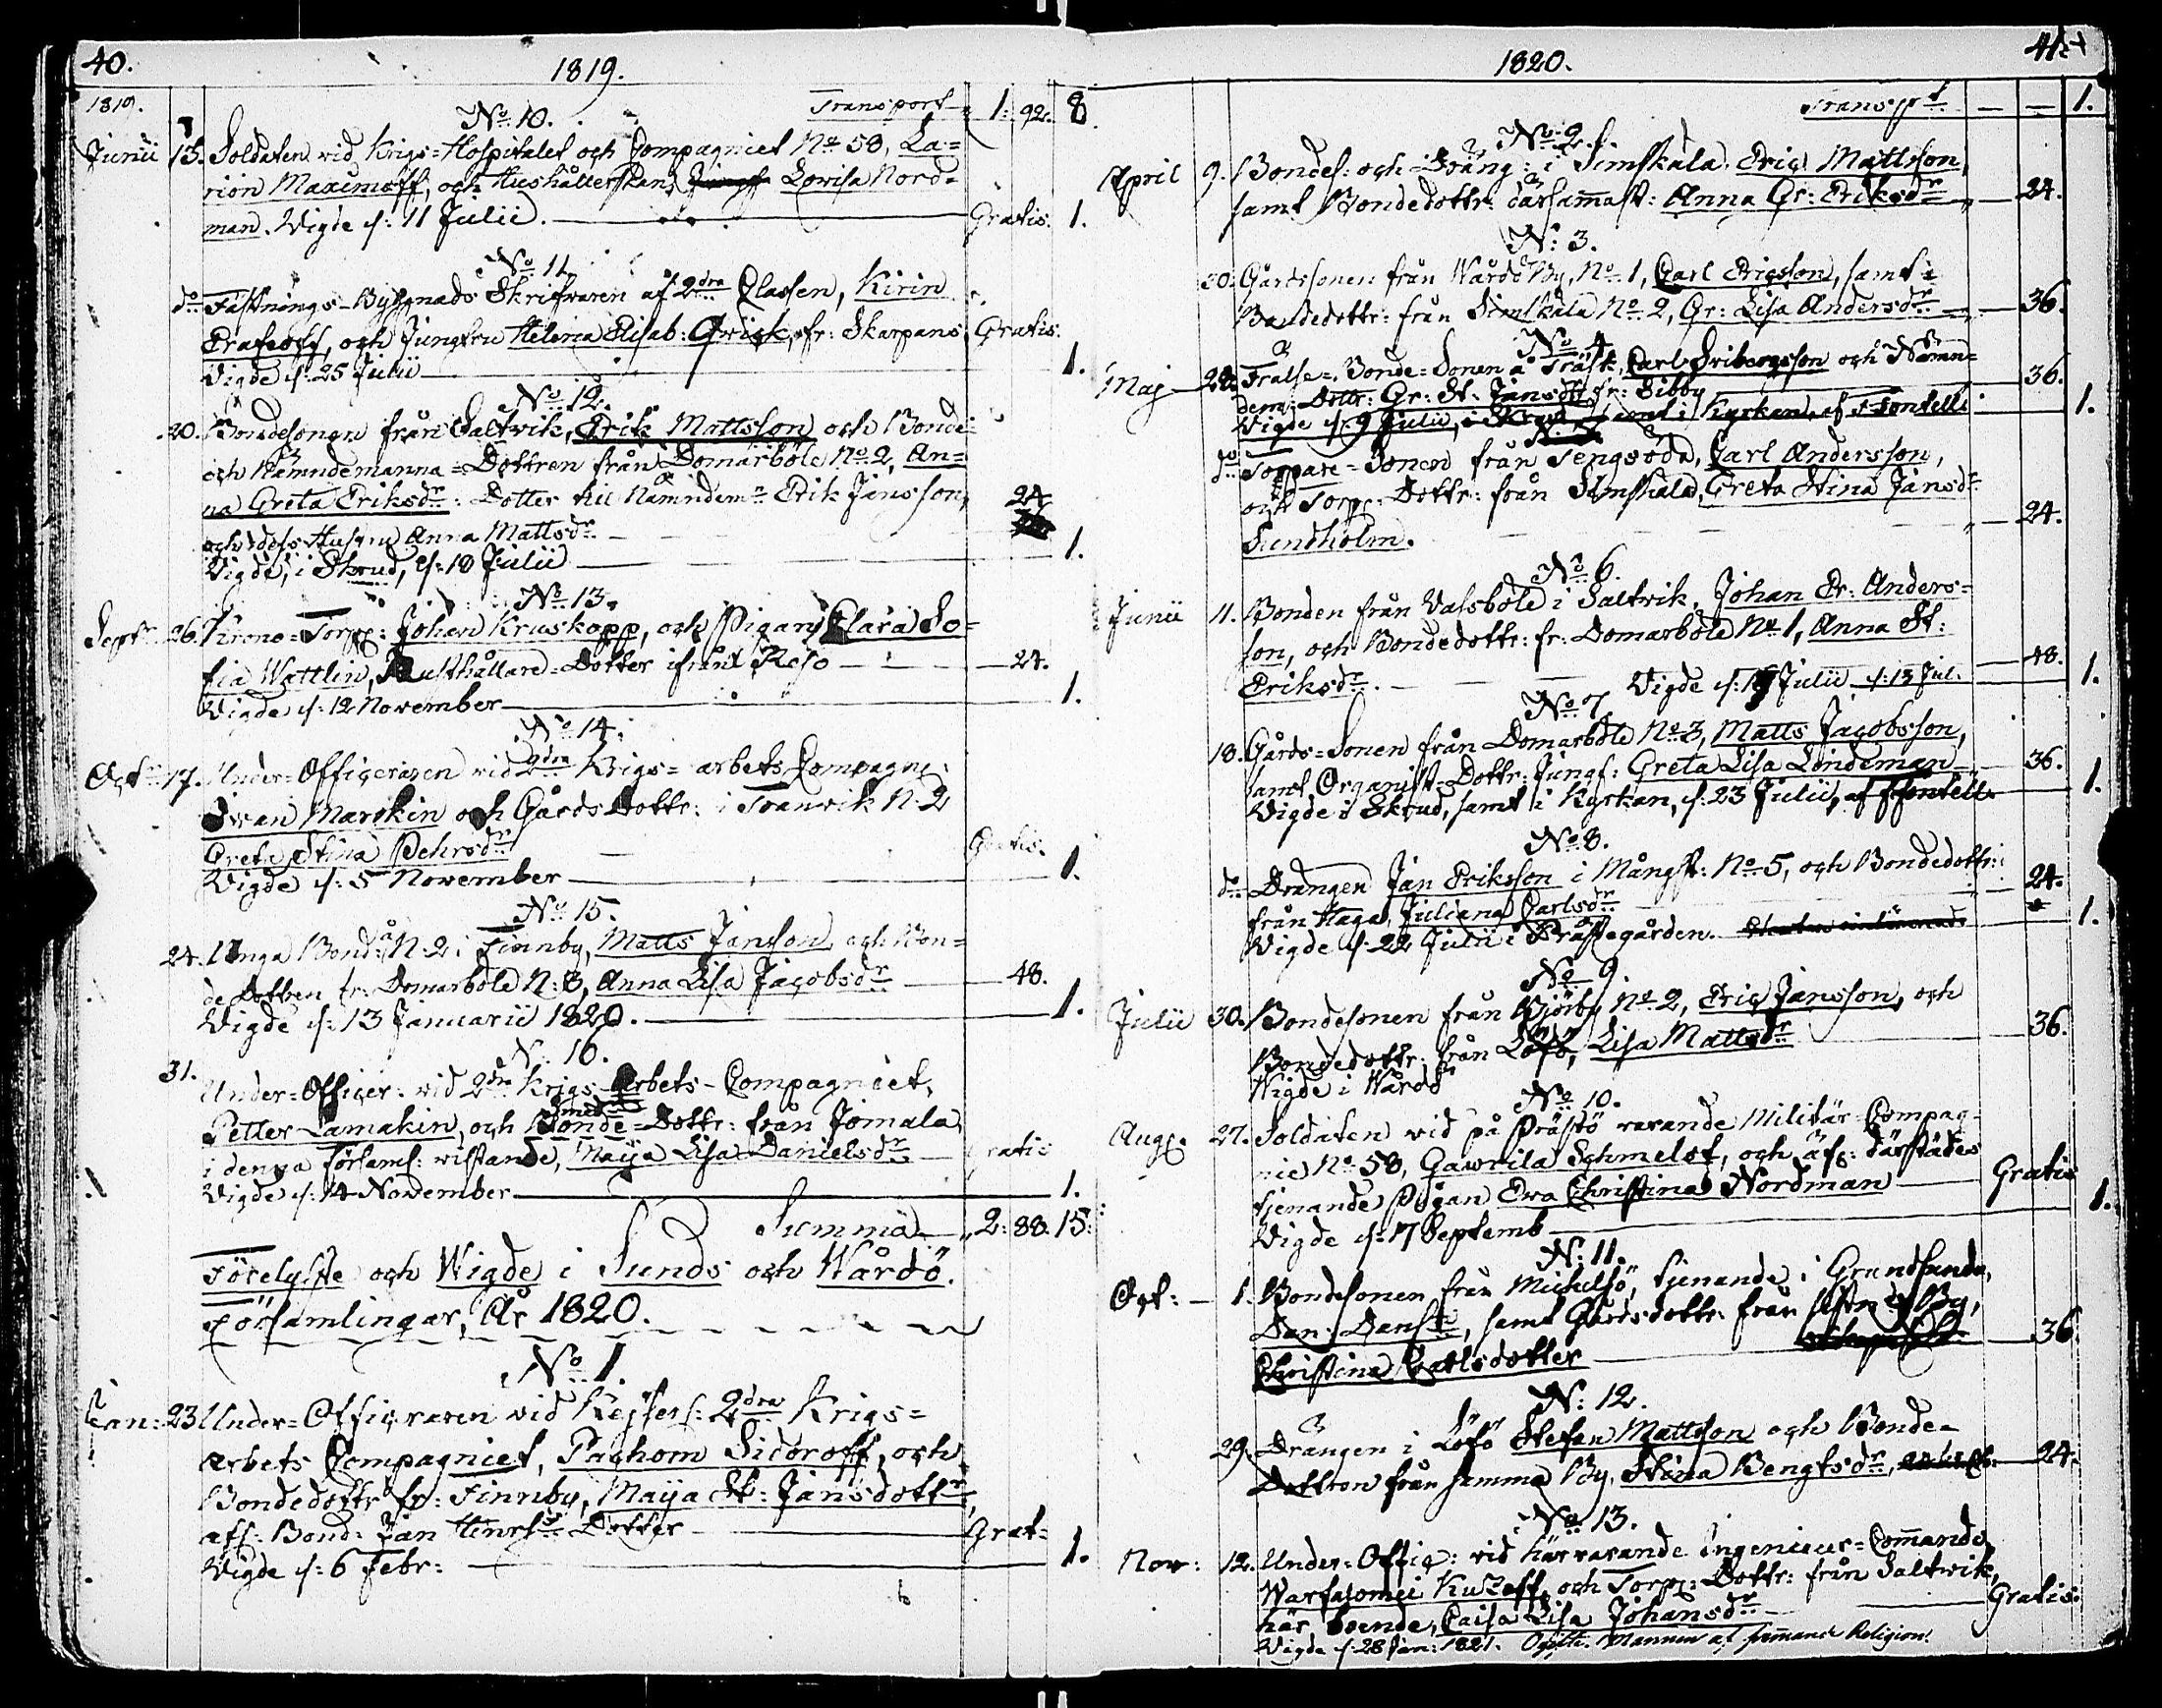 40.
1819.
1819.
No 10. Transport 1: 92. 8
Junii 13. Soldaten vid Krigs-Hospitalet och Compagniet No 58, La-
rion Maximoff, och Hushållerskan Lovisa Nord-
man. Vigde d: 11 Julii. Gratis. 1.
No 11.
do Fästnings-Byggnads Skrifvaren af 2dra Classen, Kirin
och Jungfru Helena Elisab: fr: Skarpans Gratis.
Vigde d: 25 Julii 1.
No 12.
20. Bondesonen från Saltvik, Erik Mattsson och Bonde
och Nämndemanna-Dottren från Domarböle No 2, An-
na Greta Eriksdr: Dotter til Nämndem: Erik Jansson, 24
och dess Hustru Anna Mattsdr.
Vigde, i Skrud, d: 18 Julii 1.
No 13.
Septr. 26. Krono-Torp: Johan Kruskopp, och Pigan Clara So-
fia Wattlin, Rusthållare-Dotter ifrån 24.
Vigde d: 12 November 1.
No 14.
Octr. 17. Under-Officeraren vid 2dra Krigs-arbets Compagn:
Ivan Marskin och Gårds Dottr: i Tranvik N: 2
Greta Stina Pehrsdr Gratis.
Vigde d: 5 November 1.
No 15.
24. Unga Bond: å N: 2 i Finnby, Matts Jansson, och Bon-
de Dottren fr: Domarböle N: 3, Anna Lisa Jacobsdr 48.
Vigde d: 13 Januarii 1820. 1.
N: 16.
31. Under-Officer: vid 2dra Krigs-Arbets-Compagniet,
Petter Lamakin, och Bonde-Dottr: från Jomala,
i denna församl: vistande, Maija Lisa Danielsdr Gratis
Vigde d: 14 November 1.
Summa 2: 88. 15.
Förelyste och Wigde i Sunds och Wårdö
Församlingar, År 1820.
No 1.
Jan: 23 Under-Officeraren vid Kejserl: 2dra Krigs-
arbets Compagniet, Pachom Sidoroff, och
Bondedottr fr: Finnby, Maija St: Jansdottr,
afl: Bond: Jan Henrss: Dotter Grat-
Vigde d: 6 Febr: 1.
1820.
41.
Transpt 1.
No 2.
April 9. Bondes: och Dräng: i Simskäla, Eric Mattsson,
samt Bondedottr: därsammast: Anna Gr: Eriksdr 24.
N: 3.
30. Gårdssonen från Wårdö By, No 1, Carl Ericsson, samt
Bondedottr: från Simskäla No 2, Gr: Lisa Andersdr 36.
No 4.
Maj 28. Frälse-Bonde-Sonen å Träsk, Carl och Nämn-
dem: Dottr: Gr: St: Jansdr fr: Sibby 36.
Vigde d: 9 Julii, samt i Kyrkan, af 1.
N: 5.
do Torpare-Sonen från Tengsöda, Carl Andersson,
och Torp: Dottr: från Simskäla, Greta Stina Jansdr
Sundholm. 24.
No 6.
Junii 11. Bonden från Valsböle i Saltvik, Johan Er: Anders-
son, och Bondedottr: fr: Domarböle No 1, Anna St:
Eriksdr. Vigde d: Julii d: 13 Jul. 48. 1.
No 7.
18. Gårds-Sonen från Domarböle No 3, Matts Jacobsson,
samt Organist-Dottr: Jungf: Greta Lisa Lindeman 36.
Vigde i Skrud, samt i Kyrkan, d: 23 Julii, af 1.
No 8.
do Drängen Jan Eriksson i Mångst: No 5, och Bondedottr:
från Haga, Juliana Carlsdr 24.
Vigde d: 22 Julii i Prästegården. 1.
No 9.
Julii 30. Bondesonen från No 2, Eric Jansson, och
Bondedottr: från Löfö, Lisa Mattsdr 36.
Vigde i Wårdö
No 10.
Aug: 27. Soldaten vid på Prästö varande Militär-Compag-
nie No 58, Gawrila Schmelof, och äf: därstädes
tjenande Pigan Eva Christina Nordman Gratis
Vigde d: 17 Septemb 1.
N: 11.
Oct: 1. Bondesonen från Michelsö, tjenande i Grundsunda,
Dan: Danss:, samt Gårdsdottr: från By,
Christina Carlsdotter 36.
N: 12.
29. Drängen i Löfö Stefan Mattsson och Bonde-
Dottren från samma By, Stina Bengtsdr, 24.
No 13.
Nov: 12. Under-Offic: vid härvarande Ingenieur-Commando,
Warfalomei Kuzeff, och Torp: Dottr: från Saltvik,
här boende, Caisa Lisa Johansdr Gratis.
Vigde d: 28 Jan: 1821. Mannen af främmande Religion.